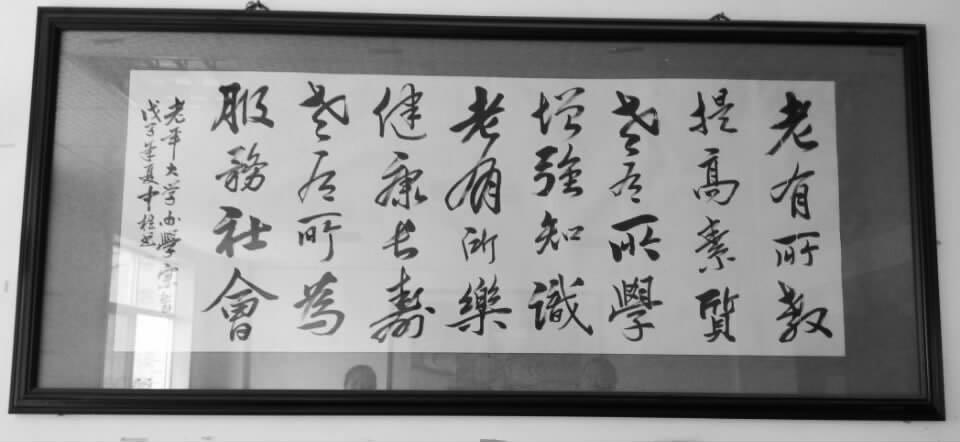 老有所教
提高素質
老有所學
增強知識
老有所樂
健康長壽
老有所為
服務社會
老年大学办學宗旨
戊子孟夏中柱书